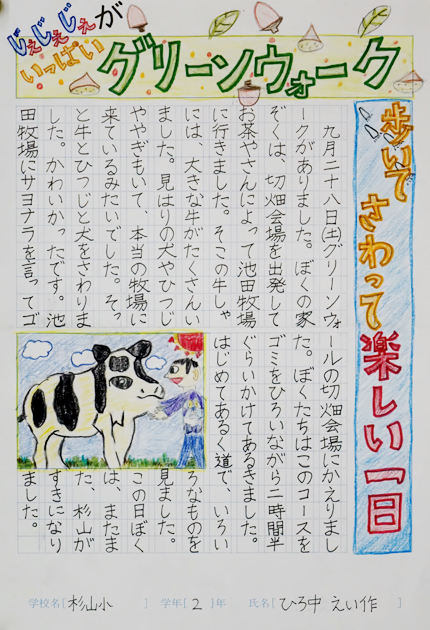 じぇじぇじぇが
いっぱい
グリーンウォーク
歩いて さわって 楽しい一日
九月二十八日(土)グリーンウォ
ークがありました。ぼくの家
ぞくは、切畑会場を出発して
お茶やさんによって池田牧場
に行きました。そこの牛しゃ
には、大きな牛がたくさんい
ました。見はりの犬やひつじ
ややぎもいて、本当の牧場に
来ているみたいでした。そっ
と牛とひつじと犬をさわりま
した。かわいかったです。池
田牧場にサヨナラを言ってゴ
ールの切畑会場にかえりまし
た。ぼくたちはこのコースを
ゴミをひろいながら二時間半
ぐらいかけてあるきました。
はじめてあるく道で、いろい
ろなものを
見ました。
この日ぼく
は、またま
た、杉山が
すきになり
ました。
学校名[杉山小] 学年[2]年 氏名[ひろ中 えい作]